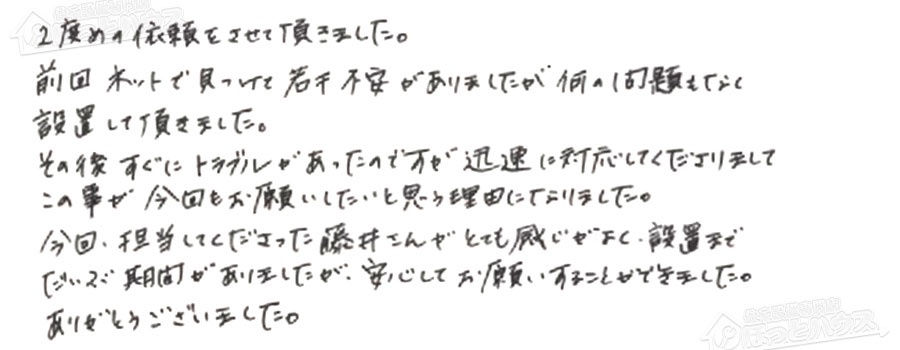 2度めの依頼をさせて頂きました。
前回 ネットで見つけて若干不安がありましたが何の問題もなく
設置して頂きました。
その後 すぐにトラブルがあったのですが迅速に対応してくださりまして
この事が今回もお願いしたいと思う理由になりました。
今回、担当してくださった藤井さんがとても感じがよく、設置まで
だいぶ期間がありましたが、安心してお願いすることができました。
ありがとうございました。
ほっとハウス